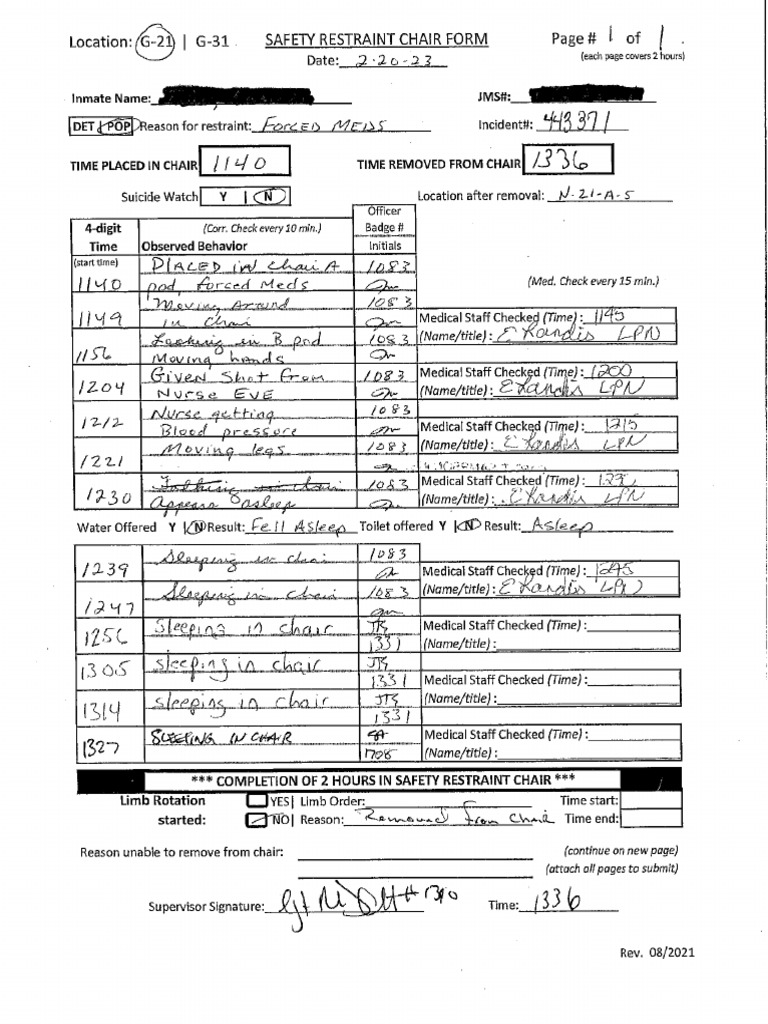 Location: G-21 | G-31 SAFETY RESTRAINT CHAIR FORM Page # 1 of 1
Date: 2-20-23 (each page covers 2 hours)
Inmate Name: JMS#:
DET / POP Reason for restraint: FORCED MEDS Incident#: 443371
TIME PLACED IN CHAIR 1140 TIME REMOVED FROM CHAIR 1336
Suicide Watch Y | N Location after removal: N-21-A-5
4-digit Time (Corr. Check every 10 min.) Observed Behavior Officer Badge # Initials
(start time) 1140 PLACED in chair A pod, forced Meds 1083 (Med. Check every 15 min.)
1149 Moving Around in chair 1083 Medical Staff Checked (Time): 1145
(Name/title): E Landis LPN
1156 Looking in B pod Moving hands 1083
1204 Given Shot from Nurse EVE 1083 Medical Staff Checked (Time): 1200
(Name/title): E Landis LPN
1212 Nurse getting Blood pressure 1083 Medical Staff Checked (Time): 1215
(Name/title): E Landis LPN
1221 Moving legs 1083
1230 Appears asleep 1083 Medical Staff Checked (Time):
(Name/title): E Landis LPN
Water Offered Y | N Result: Fell Asleep Toilet offered Y | N Result: Asleep
1239 Sleeping in chair 1083 Medical Staff Checked (Time): 1245
(Name/title): E Landis LPN
1247 Sleeping in chair 1083
1256 Sleeping in chair JTS 1331 Medical Staff Checked (Time):
(Name/title):
1305 sleeping in chair JTS 1331 Medical Staff Checked (Time):
1314 sleeping in chair JTS 1331 (Name/title):
1327 SLEEPING IN CHAIR 1708 Medical Staff Checked (Time):
(Name/title):
*** COMPLETION OF 2 HOURS IN SAFETY RESTRAINT CHAIR ***
Limb Rotation YES| Limb Order: Time start:
started: NO| Reason: Removed from Chair Time end:
Reason unable to remove from chair: (continue on new page)
(attach all pages to submit)
Supervisor Signature: #1390 Time: 1336
Rev. 08/2021